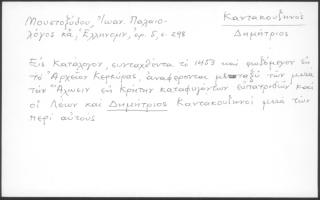 Μουστοξύδου, Ἰωαν. Παλαιο-
λόγος κλ, Ἑλληνομν., ἀρ. 5, σ. 298
Καντακουζηνός
Δημήτριος
Εἰς Κατάλογον, συνταχθέντα τὸ 1453 καὶ σωζόμενον εἰς
τὸ Ἀρχεῖον Κερκύρας, ἀναφέρονται μεταξὺ τῶν μετὰ
τὴν Ἅλωσιν εἰς Κρήτην καταφυγόντων εὐπατριδῶν καὶ
οἱ Λέων καὶ Δημήτριος Καντακουζηνοὶ μετὰ τῶν
περὶ αὐτούς